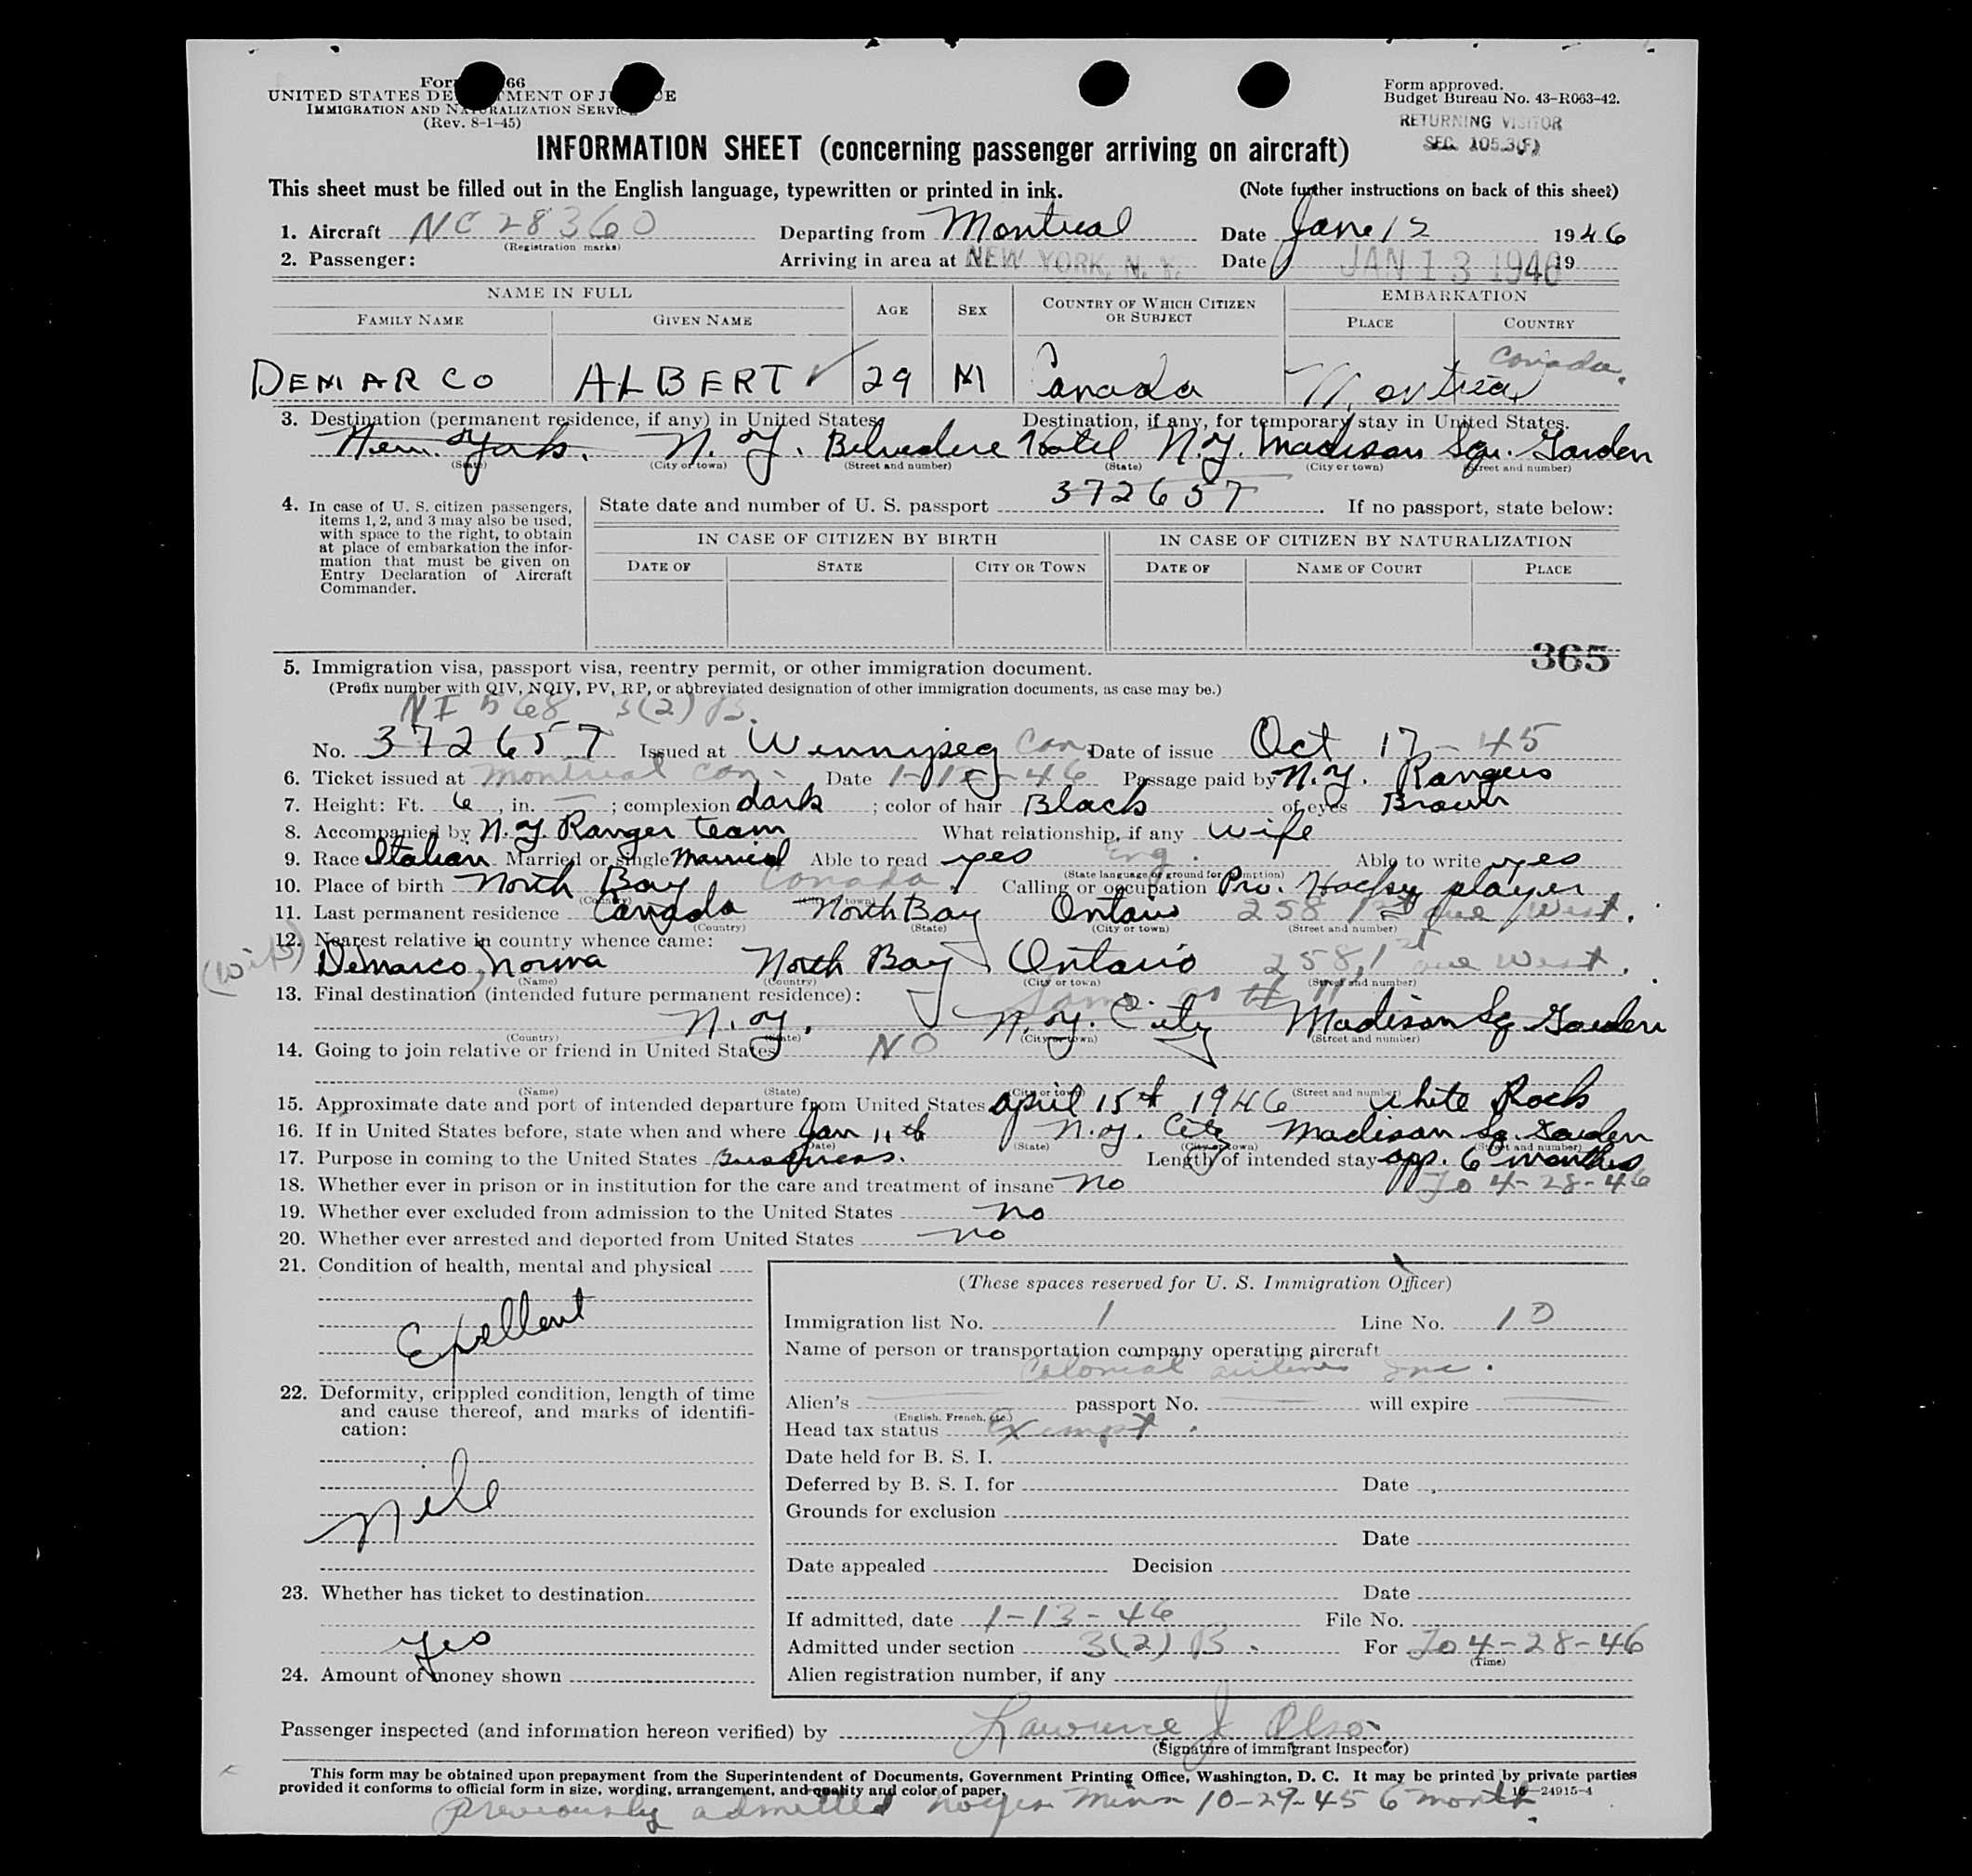 UNITED STATES DE TMENT OF J CE
IMMIGRATION AND NATURALIZATION SERVICE
(Rev. 8-1-45)
Form approved.
Budget Bureau No. 43-R063-42.
RETURNING VISITOR
SEC. 105.3(F)
INFORMATION SHEET (concerning passenger arriving on aircraft)
This sheet must be filled out in the English language, typewritten or printed in ink. (Note further instructions on back of this sheet)
1. Aircraft NC 28360 Departing from Montreal Date Jan 12 1946
(Registration marks)
2. Passenger: Arriving in area at NEW YORK, N. Y. Date JAN 13 1946 19
NAME IN FULL AGE SEX COUNTRY OF WHICH CITIZEN OR SUBJECT EMBARKATION
FAMILY NAME GIVEN NAME PLACE COUNTRY
DEMARCO ALBERT ✓ 29 M Canada Montreal Canada.
3. Destination (permanent residence, if any) in United States Destination, if any, for temporary stay in United States.
New York. N. Y. Belvedere Hotel N.Y. Madison Sqr. Garden
(State) (City or town) (Street and number) (State) (City or town) (Street and number)
4. In case of U. S. citizen passengers, items 1, 2, and 3 may also be used, with space to the right, to obtain at place of embarkation the information that must be given on Entry Declaration of Aircraft Commander.
State date and number of U. S. passport 372657 If no passport, state below:
IN CASE OF CITIZEN BY BIRTH IN CASE OF CITIZEN BY NATURALIZATION
DATE OF STATE CITY OR TOWN DATE OF NAME OF COURT PLACE
365
5. Immigration visa, passport visa, reentry permit, or other immigration document.
(Prefix number with QIV, NQIV, PV, RP, or abbreviated designation of other immigration documents, as case may be.)
NI 568 3(2) B.
No. 372657 Issued at Winnipeg Can. Date of issue Oct 17-45
6. Ticket issued at Montreal Can. Date 1-12-46 Passage paid by N.Y. Rangers
7. Height: Ft. 6, in. —; complexion dark; color of hair Black of eyes Brown
8. Accompanied by N.Y Ranger team What relationship, if any wife
9. Race Italian Married or single Married Able to read yes Eng. Able to write yes
(State language or ground for exemption)
10. Place of birth North Bay Canada. Calling or occupation Pro. Hockey player
(Country) (City or town)
11. Last permanent residence Canada North Bay Ontario 258 1st ave West.
(Country) (State) (City or town) (Street and number)
12. Nearest relative in country whence came:
(wife) Demarco, Norma North Bay Ontario 258, 1st ave West.
(Name) (Country) (City or town) (Street and number)
13. Final destination (intended future permanent residence): Same as # 11
N.Y. N.Y. City Madison Sq Garden
(Country) (State) (City or town) (Street and number)
14. Going to join relative or friend in United States NO
(Name) (State) (City or town) (Street and number)
15. Approximate date and port of intended departure from United States April 15th 1946 White Rock
16. If in United States before, state when and where Jan 11th N.Y. City Madison Sq. Garden
(Date) (State) (City or town) (Street and number)
17. Purpose in coming to the United States Bussiness. Length of intended stay app. 6 months
To 4-28-46
18. Whether ever in prison or in institution for the care and treatment of insane No
19. Whether ever excluded from admission to the United States no
20. Whether ever arrested and deported from United States no
21. Condition of health, mental and physical
Exellent
22. Deformity, crippled condition, length of time and cause thereof, and marks of identification:
Nile
23. Whether has ticket to destination
yes
24. Amount of money shown
(These spaces reserved for U. S. Immigration Officer)
Immigration list No. 1 Line No. 10
Name of person or transportation company operating aircraft
Colonial airlines Inc.
Alien's passport No. will expire
(English, French, etc.)
Head tax status Exempt.
Date held for B. S. I.
Deferred by B. S. I. for Date
Grounds for exclusion
Date
Date appealed Decision
Date
If admitted, date 1-13-46 File No.
Admitted under section 3(2) B. For To 4-28-46
(Time)
Alien registration number, if any
Passenger inspected (and information hereon verified) by Lawrence J Olson
(Signature of immigrant inspector)
This form may be obtained upon prepayment from the Superintendent of Documents, Government Printing Office, Washington, D. C. It may be printed by private parties
provided it conforms to official form in size, wording, arrangement, and quality and color of paper. 16-24915-4
previously admitted Noyes Minn 10-29-45 6 month.